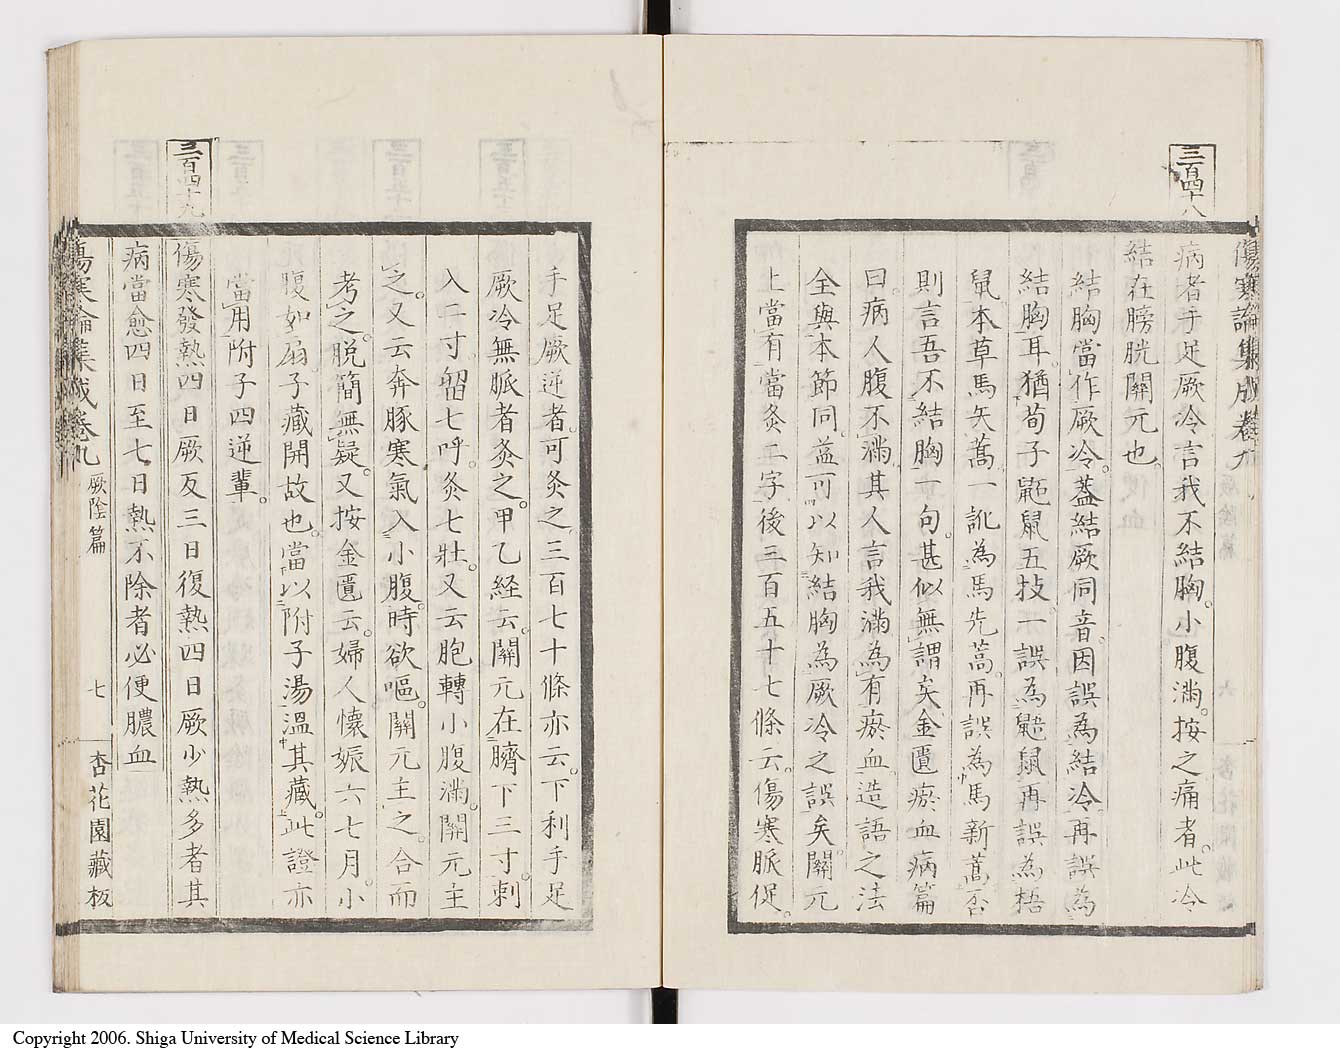 三百四十八
病者手足厥冷言我不結胸。小腹滿。按之痛者。此冷
結在膀胱關元也。
結胸當作厥冷。蓋結厥同音。因誤為結冷再誤為
結胸耳。猶荀子鼫鼠五技。一誤為鼯鼠再誤為梧
鼠本草馬矢蒿一訛為馬先蒿。再誤為馬新蒿否
則言吾不結胸一句。甚似無謂矣金匱瘀血病篇
曰。病人腹不滿其人言我滿為有瘀血造語之法
全與本節同。益可以知結胸為厥冷之誤矣。關元
上當有當灸二字後三百五十七條云。傷寒脈促。
傷寒論集成卷九
手足厥逆者。可灸之三百七十條亦云。下利手足
厥冷無脈者灸之。甲乙経云。關元在臍下三寸。刺
入二寸。留七呼。灸七壯。又云胞轉小腹滿。關元主
之。又云奔豚寒氣入小腹。時欲嘔。關元主之。合而
考之。脱簡無疑。又按金匱云。婦人懷娠六七月。小
腹如扇。子藏開故也。當以附子湯溫其藏。此證亦
當用附子四逆輩。
三百四十九
傷寒發熱四日厥反三日復熱四日厥少熱多者其
病當愈四日至七日熱不除者必便膿血
傷寒論集成卷九 厥陰篇 七 杏花園藏板
Copyright 2006. Shiga University of Medical Science Library